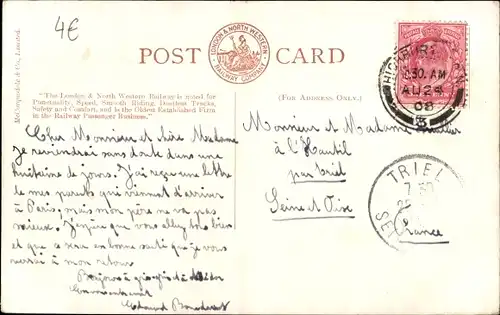 4€
POST CARD
LONDON & NORTH WESTERN
RAILWAY COMPANY
McCorquodale & Co., Limited.
"The London & North Western Railway is noted for
Punctuality, Speed, Smooth Riding, Dustless Tracks,
Safety and Comfort, and is the Oldest Established Firm
in the Railway Passenger Business."
(FOR ADDRESS ONLY.)
HIGHBURY
10.30 AM
AU 24
08
Cher Monsieur et chère Madame
Je reviendrai sans doute dans une
huitaine de jours. J'ai reçu une lettre
de mes parents qui viennent d'arriver
à Paris, mais mon père ne va pas
mieux. J'espère que vous allez bien
et que ce sera en bonne santé que je vous
verrai à mon retour
Bonjour à
Edouard
Monsieur et Madame
à l'Hautil
par Triel
Seine et Oise
France
TRIEL